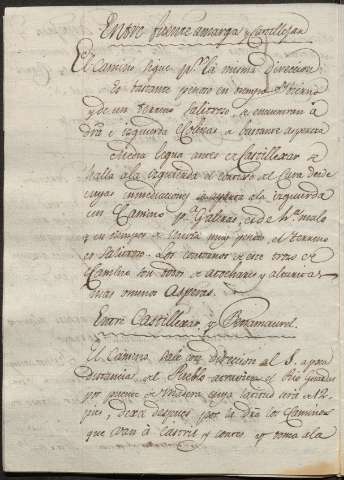 Entre fuente amarga y Castillejar
El Camino sigue pr. la misma Direccion
es bastante penoso en tiempo de Ybierno
y de un Terreno Salitroso, se encuentran à
dra. e izquierda Colinas de bastante aspereza
Media legua antes de Castillexar se
halla a la izquierda el cortijo del Cura desde
cuyas inmediaciones a la izquierda
un Camino pr. Galera, es de hra. malo
y en tiempos de lluvia muy penoso, el terreno
es Salitroso. Los contornos de este trozo de
Camino son todos de atochares y alturas
mas o menos Asperas.
Entre Castillexar y Benamaurel.
El Camino sale con direccion al S. a poca
Distancia del Pueblo atraviesa el Rio Guardal
por puente de Madera cuya latitud será de 12
pies, dexa despues por la dra. los Caminos
que van à Castril y Cortes y toma a la